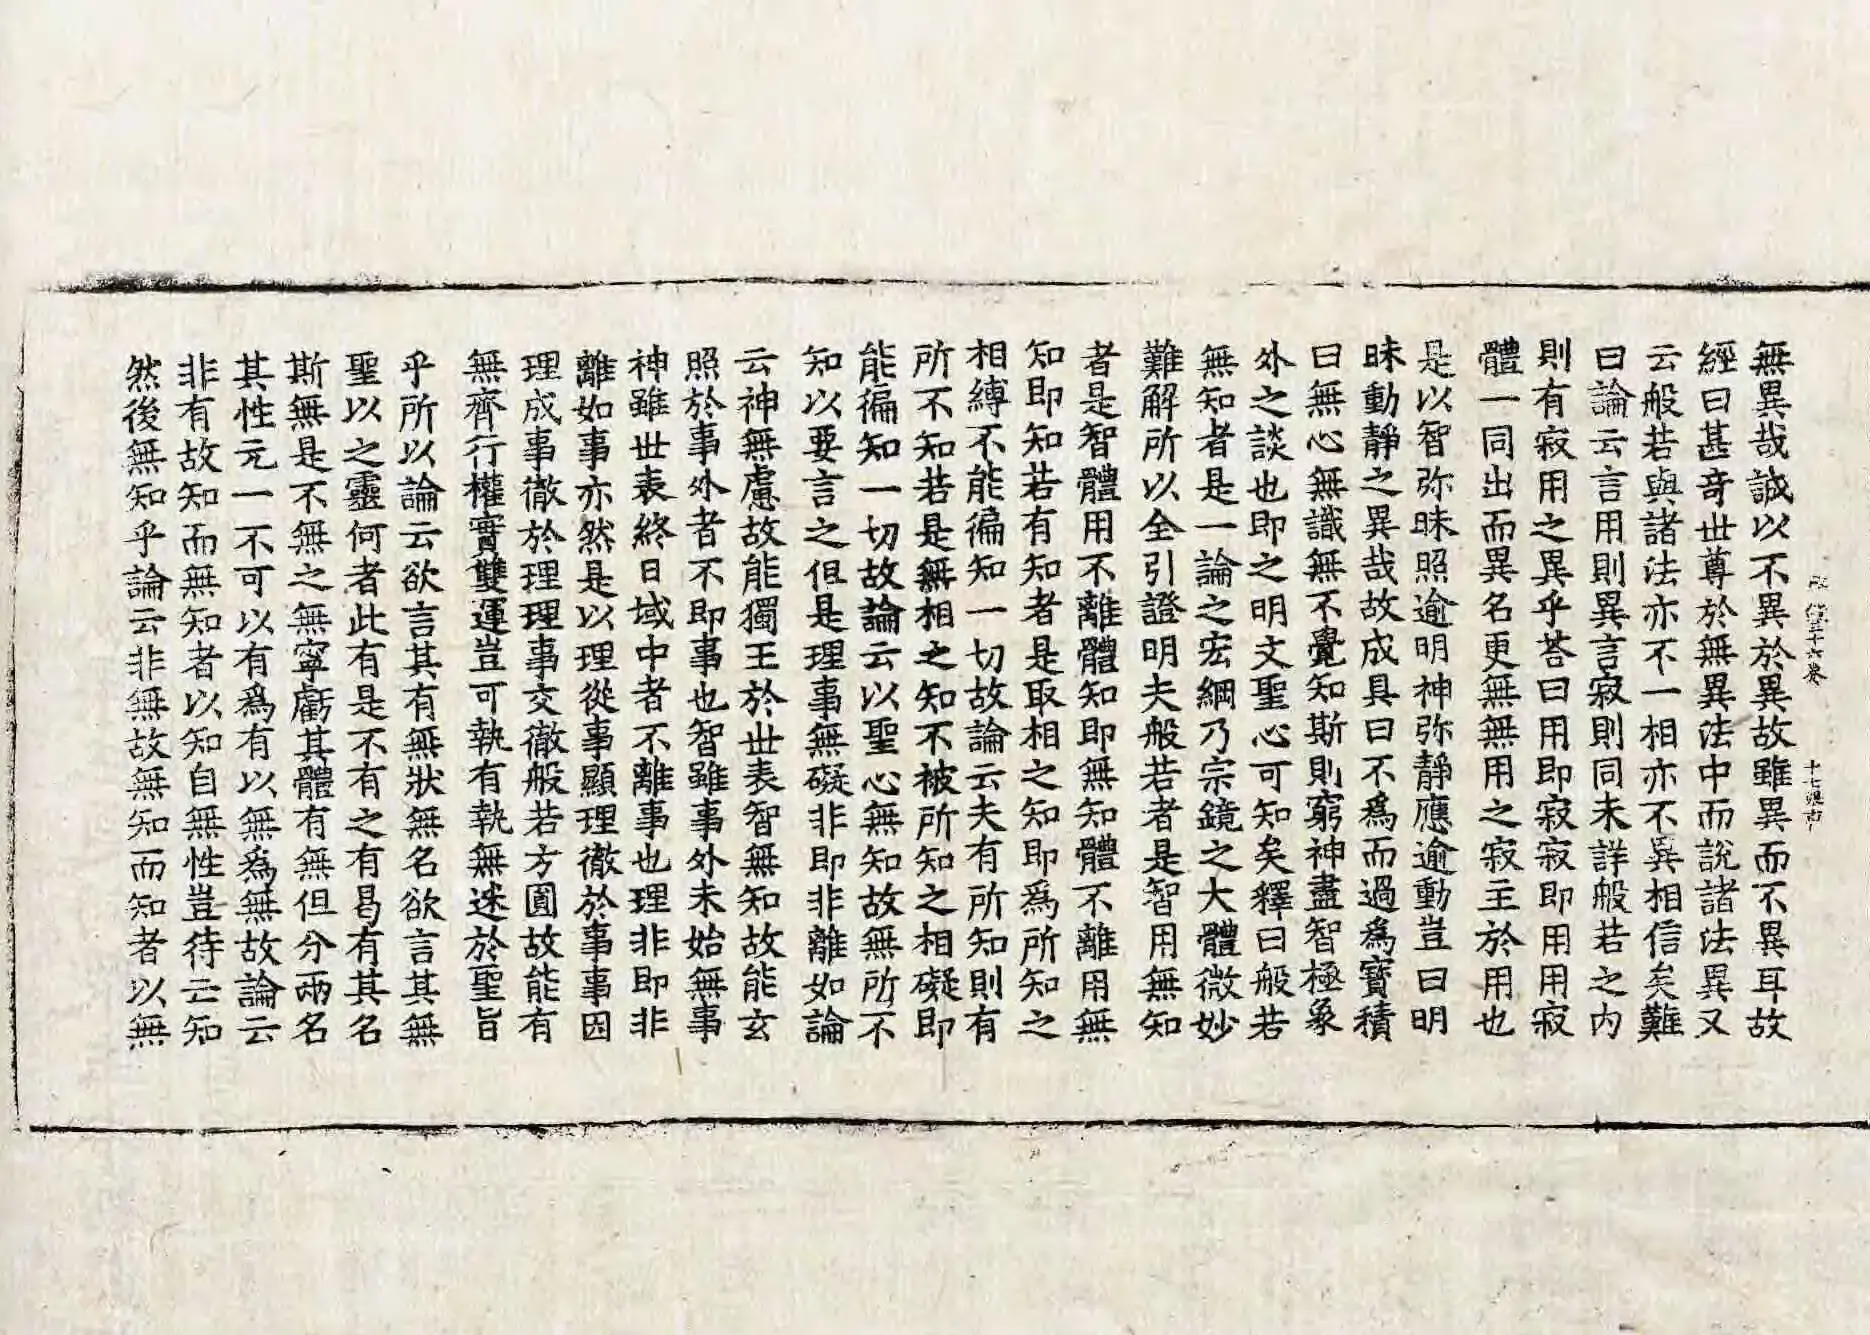 無異哉誠以不異於異故雖異而不異耳故
經曰甚奇世尊於無異法中而說諸法異又
云般若與諸法亦不一相亦不異相信矣難
曰論云言用則異言寂則同未詳般若之內
則有寂用之異乎荅曰用即寂寂即用用寂
體一同出而異名更無無用之寂主於用也
是以智弥昧照逾明神弥靜應逾動豈曰明
昧動靜之異哉故成具曰不爲而過爲寶積
曰無心無識無不覺知斯則窮神盡智極象
外之談也即之明文聖心可知矣釋曰般若
無知者是一論之宏綱乃宗鏡之大體微妙
難解所以全引證明夫般若者是智用無知
者是智體用不離體知即無知體不離用無
知即知若有知者是取相之知即爲所知之
相縛不能徧知一切故論云夫有所知則有
所不知若是無相之知不被所知之相礙即
能徧知一切故論云以聖心無知故無所不
知以要言之但是理事無礙非即非離如論
云神無慮故能獨王於世表智無知故能玄
照於事外者不即事也智雖事外未始無事
神雖世表終日域中者不離事也理非即非
離如事亦然是以理從事顯理徹於事事因
理成事徹於理理事交徹般若方圓故能有
無齊行權實雙運豈可執有執無迷於聖旨
乎所以論云欲言其有無狀無名欲言其無
聖以之靈何者此有是不有之有曷有其名
斯無是不無之無寧虧其體有無但分兩名
其性元一不可以有爲有以無爲無故論云
非有故知而無知者以知自無性豈待亡知
然後無知乎論云非無故無知而知者以無